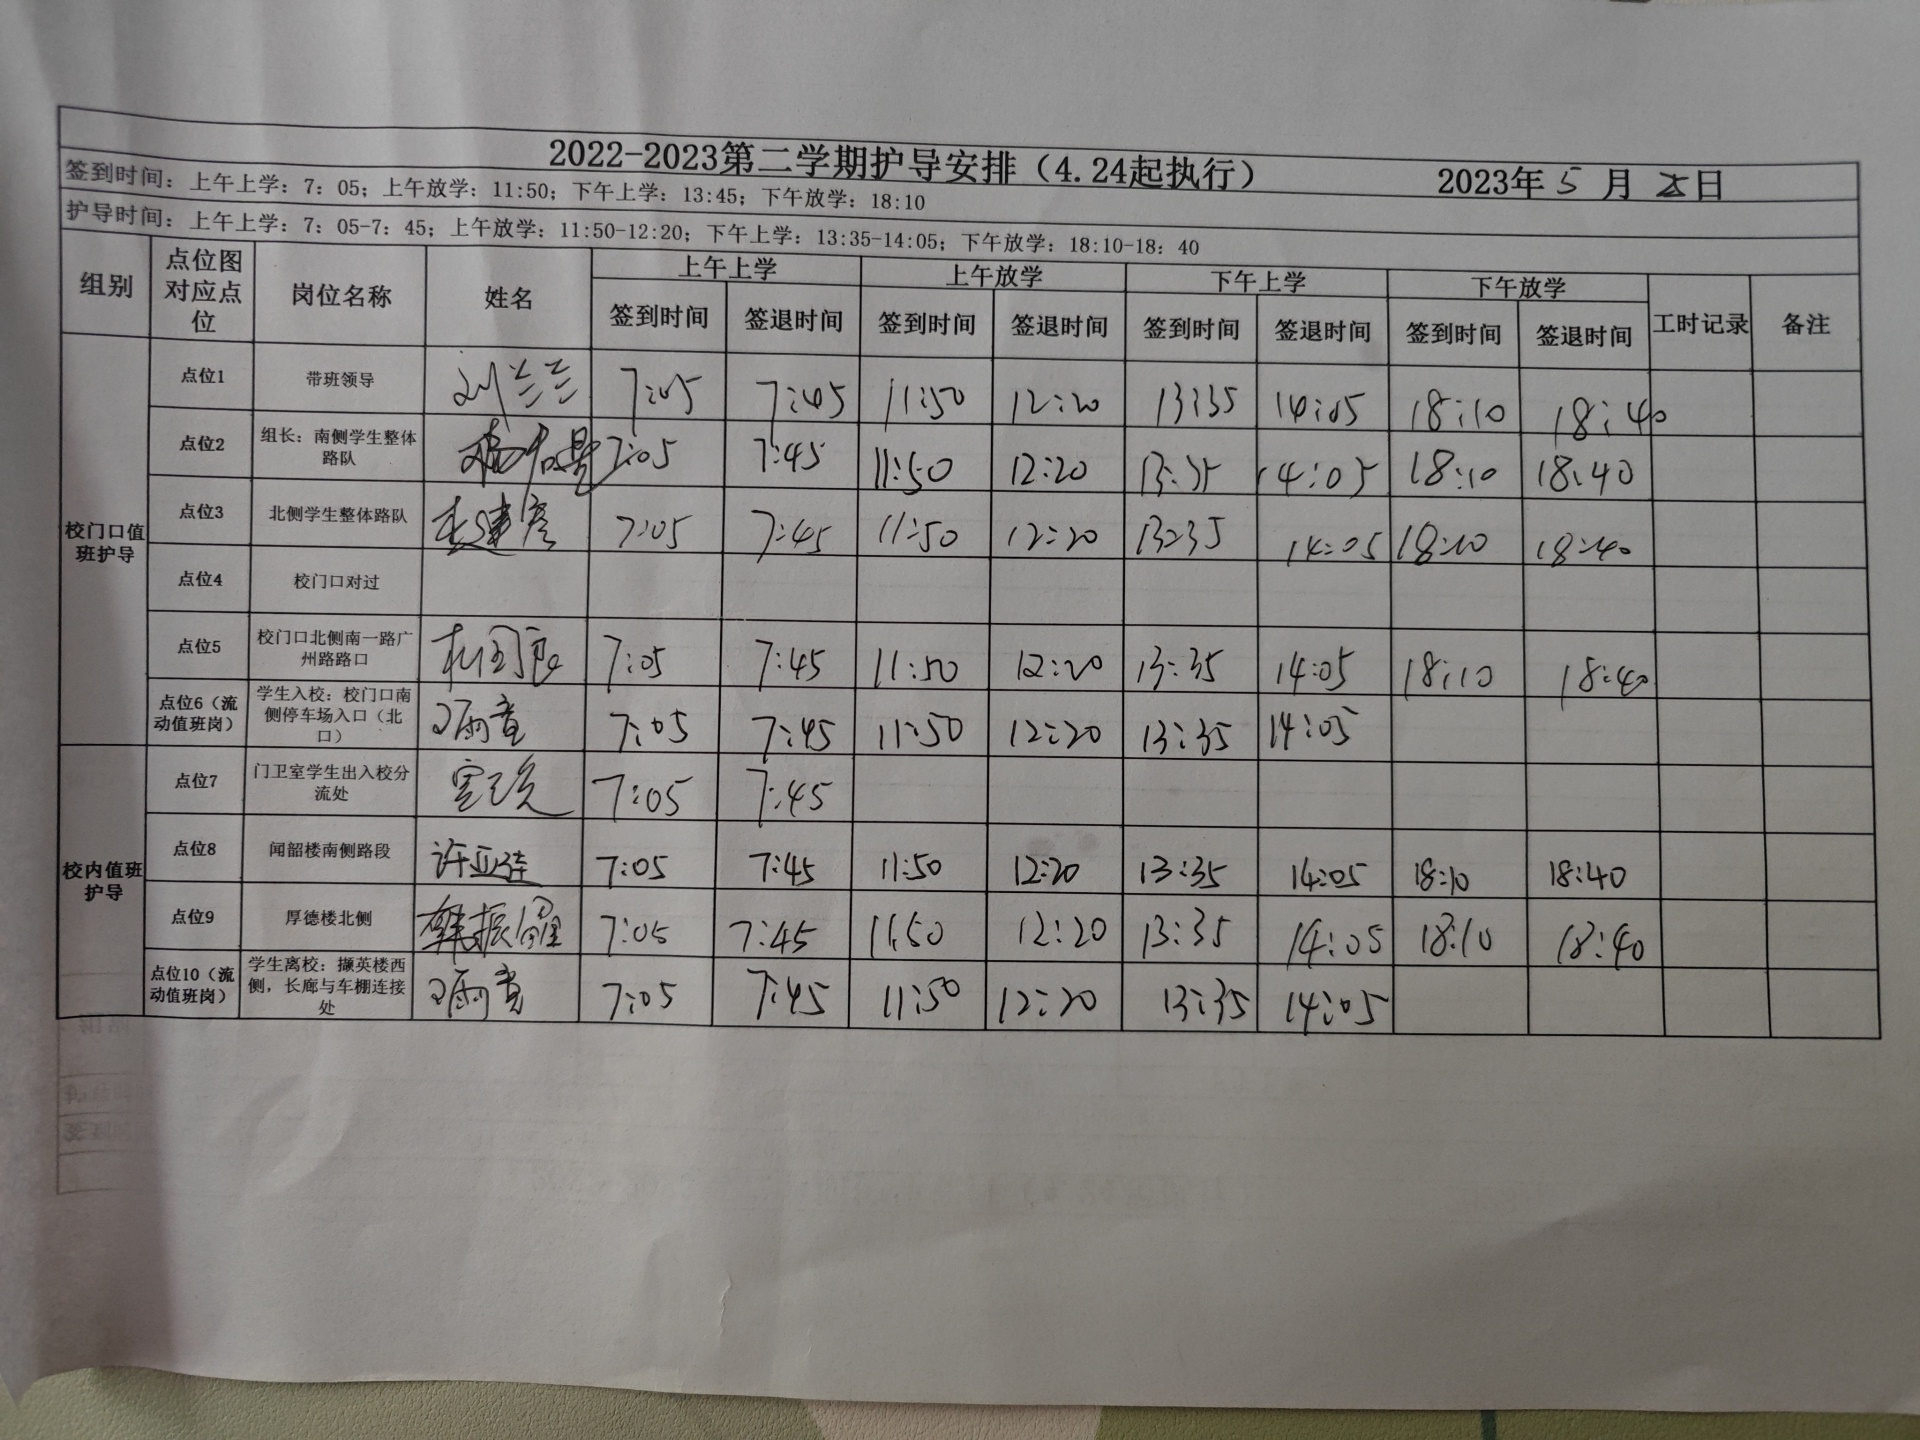 2022-2023第二学期护导安排（4.24起执行） 2023年 5 月 日
签到时间：上午上学：7：05；上午放学：11:50；下午上学：13:45；下午放学：18:10
护导时间：上午上学：7：05-7：45；上午放学：11:50-12:20；下午上学：13:35-14:05；下午放学：18:10-18：40
组别 点位图对应点位 岗位名称 姓名 上午上学 上午放学 下午上学 下午放学 工时记录 备注
签到时间 签退时间 签到时间 签退时间 签到时间 签退时间 签到时间 签退时间
校门口值班护导
点位1 带班领导 刘兰兰 7:05 7:45 11:50 12:20 13:35 14:05 18:10 18:40
点位2 组长：南侧学生整体路队 7:05 7:45 11:50 12:20 13:35 14:05 18:10 18:40
点位3 北侧学生整体路队 7:05 7:45 11:50 12:20 13:35 14:05 18:10 18:40
点位4 校门口对过
点位5 校门口北侧南一路广州路路口 7:05 7:45 11:50 12:20 13:35 14:05 18:10 18:40
点位6（流动值班岗） 学生入校：校门口南侧停车场入口（北口） 7:05 7:45 11:50 12:20 13:35 14:05
校内值班护导
点位7 门卫室学生出入校分流处 7:05 7:45
点位8 闻韶楼南侧路段 7:05 7:45 11:50 12:20 13:35 14:05 18:10 18:40
点位9 厚德楼北侧 7:05 7:45 11:50 12:20 13:35 14:05 18:10 18:40
点位10（流动值班岗） 学生离校：撷英楼西侧，长廊与车棚连接处 7:05 7:45 11:50 12:20 13:35 14:05